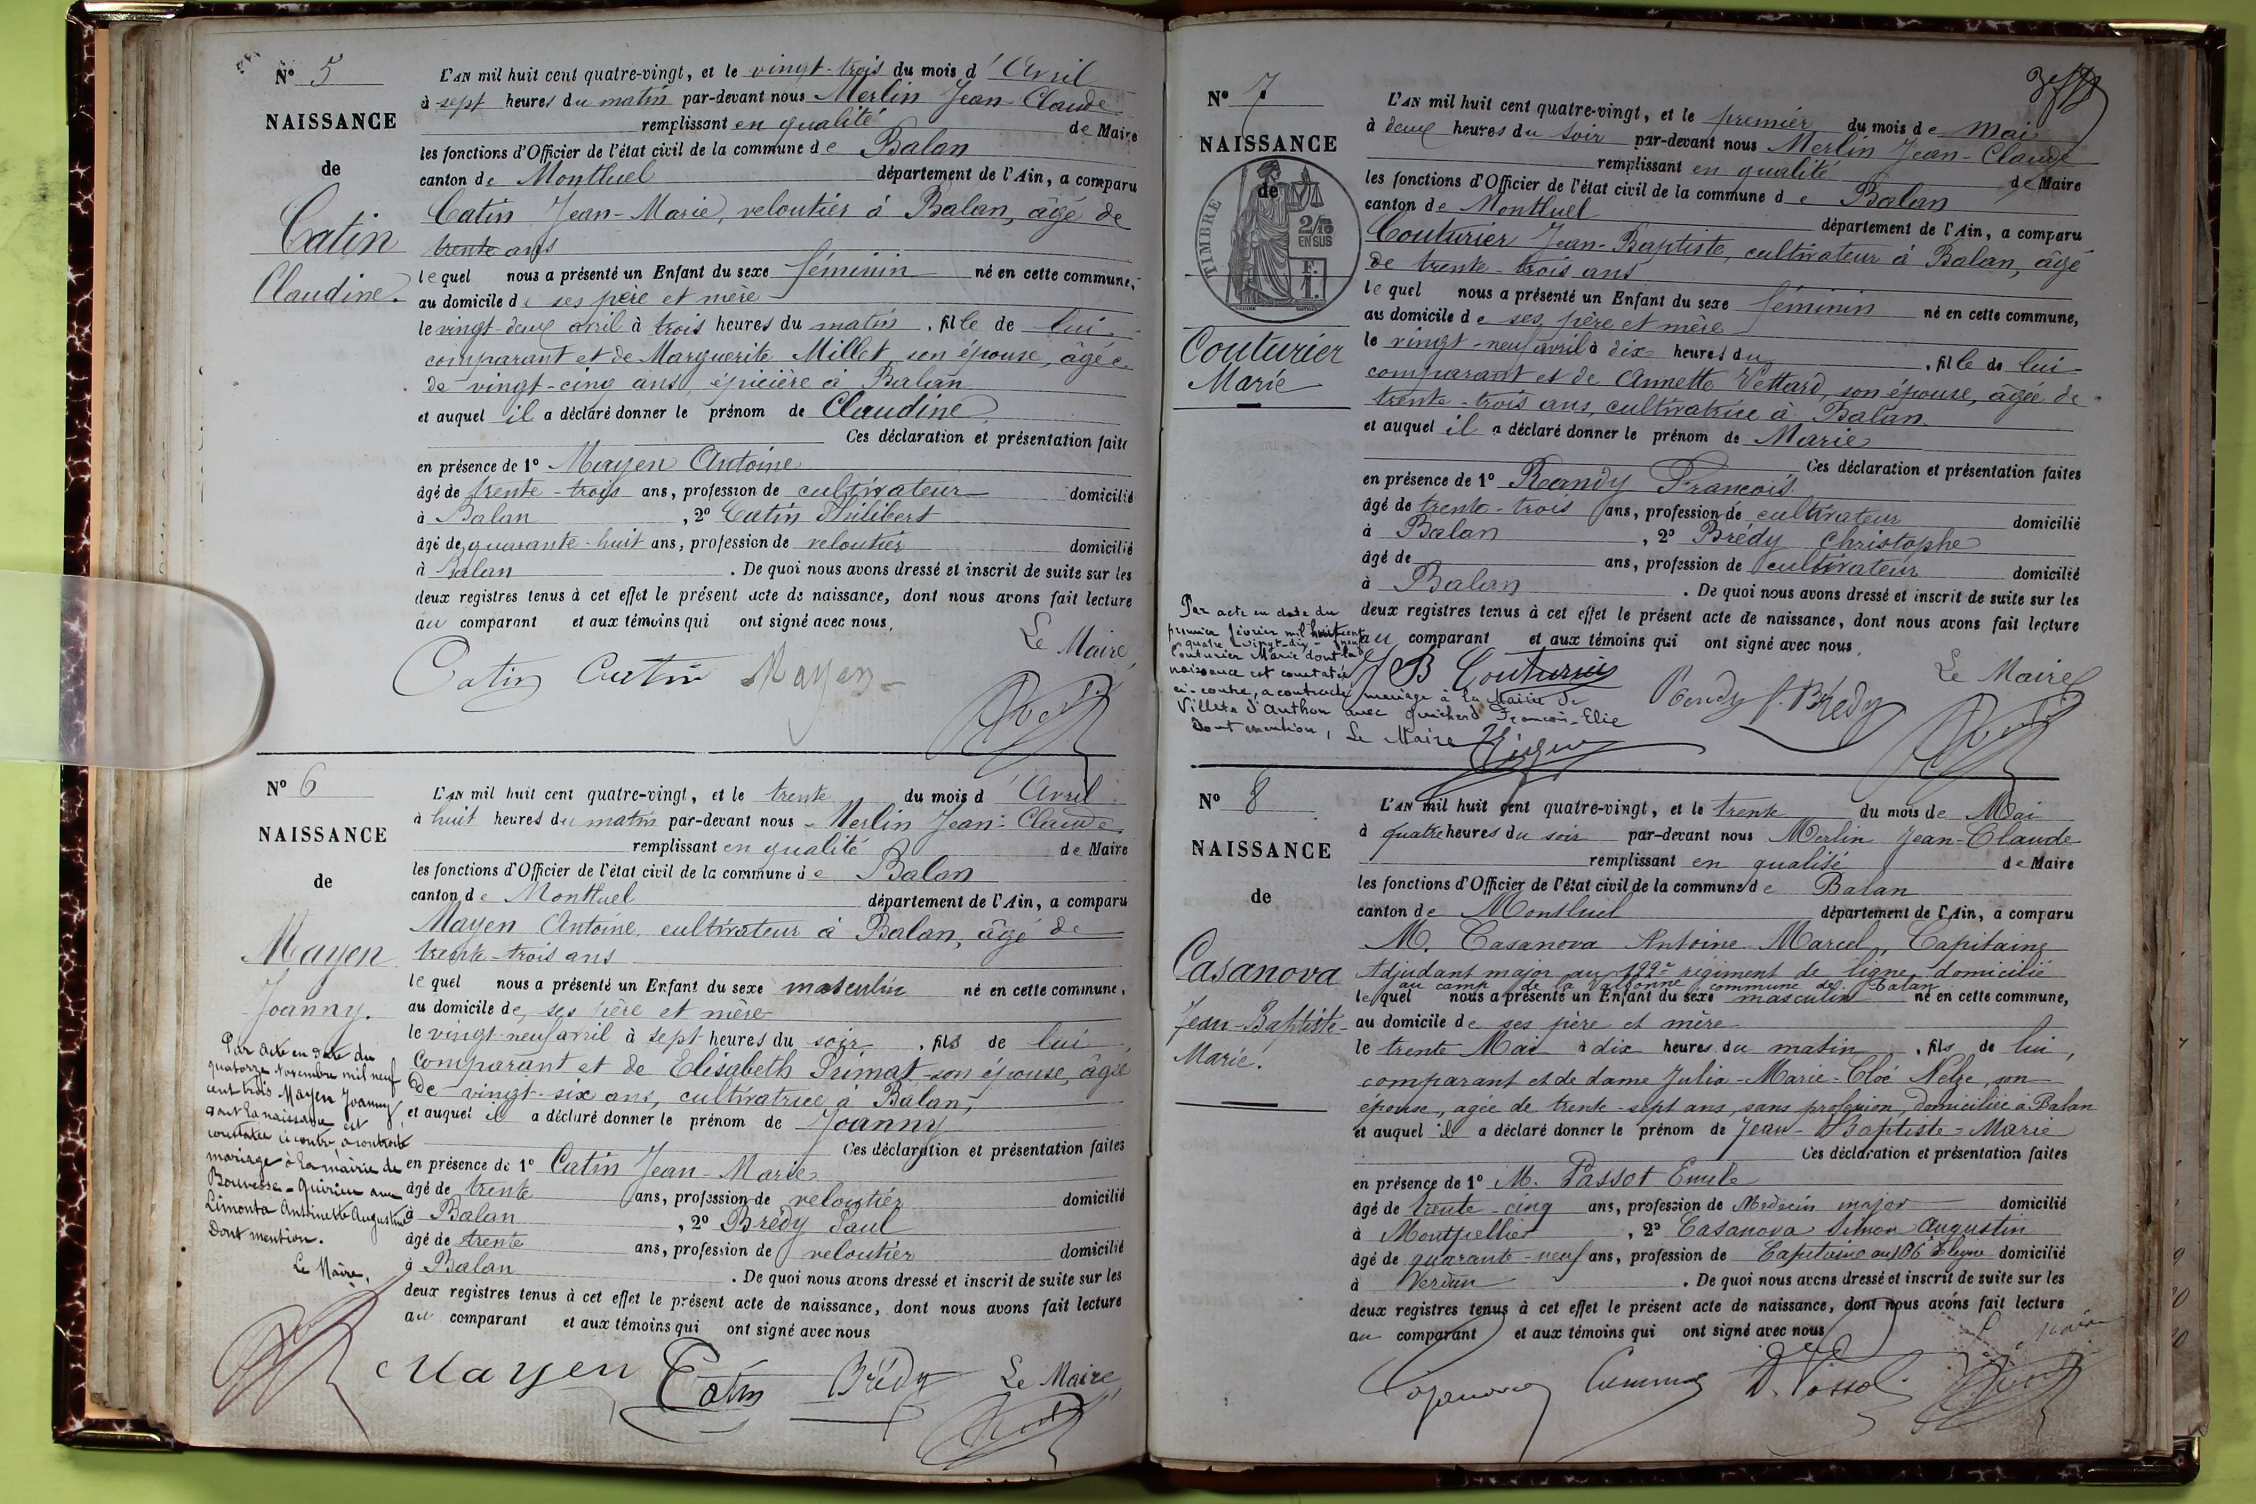 N° 5
NAISSANCE
de
Catin
Claudine.
L'AN mil huit cent quatre-vingt, et le vingt-trois du mois d'Avril
à sept heures du matin par-devant nous Merlin Jean-Claude
remplissant en qualité de Maire
les fonctions d'Officier de l'état civil de la commune de Balan
canton de Montluel département de l'Ain, a comparu
Catin Jean-Marie, veloutier à Balan, âgé de
trente ans
lequel nous a présenté un Enfant du sexe féminin né en cette commune,
au domicile de ses père et mère
le vingt-deux avril à trois heures du matin, fille de lui
comparant et de Marguerite Millet son épouse, âgée
de vingt-cinq ans, épicière à Balan
et auquel il a déclaré donner le prénom de Claudine
Ces déclaration et présentation faite
en présence de 1° Mayen Antoine
âgé de trente-trois ans, profession de cultivateur domicilié
à Balan, 2° Catin Philibert
âgé de quarante-huit ans, profession de veloutier domicilié
à Balan. De quoi nous avons dressé et inscrit de suite sur les
deux registres tenus à cet effet le présent acte de naissance, dont nous avons fait lecture
au comparant et aux témoins qui ont signé avec nous.
Le Maire
Catin Catin Mayen
N° 6
NAISSANCE
de
Mayen
Joanny.
Par acte en date du
quatorze Novembre mil neuf
cent trois Mayen Joanny
dont la naissance est
constatée ci contre, a contracté
mariage à la mairie de
Bouvesse-Quirieu avec
Limonta Antoinette Augustine
Dont mention.
Le Maire,
L'AN mil huit cent quatre-vingt, et le trente du mois d'Avril
à huit heures du matin par-devant nous Merlin Jean-Claude
remplissant en qualité de Maire
les fonctions d'Officier de l'état civil de la commune de Balan
canton de Montluel département de l'Ain, a comparu
Mayen Antoine cultivateur à Balan, âgé de
trente-trois ans
lequel nous a présenté un Enfant du sexe masculin né en cette commune,
au domicile de ses père et mère
le vingt-neuf avril à sept heures du soir, fils de lui
comparant et de Elisabeth Primat son épouse, âgée
de vingt-six ans, cultivatrice à Balan,
et auquel il a déclaré donner le prénom de Joanny
Ces déclaration et présentation faites
en présence de 1° Catin Jean-Marie
âgé de trente ans, profession de veloutier domicilié
à Balan, 2° Brédy Paul
âgé de trente ans, profession de veloutier domicilié
à Balan. De quoi nous avons dressé et inscrit de suite sur les
deux registres tenus à cet effet le présent acte de naissance, dont nous avons fait lecture
au comparant et aux témoins qui ont signé avec nous
Mayen Catin Brédy Le Maire
N° 7
NAISSANCE
de
TIMBRE
2/10
EN SUS
F.
1.
Couturier
Marie
L'AN mil huit cent quatre-vingt, et le premier du mois de Mai
à deux heures du soir par-devant nous Merlin Jean-Claude
remplissant en qualité de Maire
les fonctions d'Officier de l'état civil de la commune de Balan
canton de Montluel département de l'Ain, a comparu
Couturier Jean-Baptiste, cultivateur à Balan, âgé
de trente-trois ans
lequel nous a présenté un Enfant du sexe féminin né en cette commune,
au domicile de ses père et mère
le vingt-neuf avril à dix heures du, fille de lui
comparant et de Annette Vettard, son épouse, âgée de
trente-trois ans, cultivatrice à Balan
et auquel il a déclaré donner le prénom de Marie
Ces déclaration et présentation faites
en présence de 1° Randy François
âgé de trente-trois ans, profession de cultivateur domicilié
à Balan, 2° Brédy Christophe
âgé de ans, profession de cultivateur domicilié
à Balan. De quoi nous avons dressé et inscrit de suite sur les
deux registres tenus à cet effet le présent acte de naissance, dont nous avons fait lecture
au comparant et aux témoins qui ont signé avec nous.
Par acte en date du
premier février mil huit cent
quatre-vingt-dix-neuf
Couturier Marie dont la
naissance est constatée
ci-contre, a contracté mariage à la Mairie de
Villette d'Anthon avec Guichard François-Elie
Dont mention, Le Maire
J B Couturier Rendy f. Brédy Le Maire
N° 8
NAISSANCE
de
Casanova
Jean-Baptiste-
Marie.
L'AN mil huit cent quatre-vingt, et le trente du mois de Mai
à quatre heures du soir par-devant nous Merlin Jean-Claude
remplissant en qualité de Maire
les fonctions d'Officier de l'état civil de la commune de Balan
canton de Montluel département de l'Ain, a comparu
M. Casanova Antoine Marcel, Capitaine
Adjudant major au 122e régiment de ligne, domicilié
au camp de la Valbonne commune de Balan
lequel nous a présenté un Enfant du sexe masculin né en cette commune,
au domicile de ses père et mère
le trente Mai à dix heures du matin, fils de lui,
comparant et de dame Julia-Marie-Cloé Nelze, son
épouse, agée de trente-sept ans, sans profession, domiciliée à Balan
et auquel il a déclaré donner le prénom de Jean-Baptiste-Marie
Ces déclaration et présentation faites
en présence de 1° M. Passot Emile
âgé de trente-cinq ans, profession de Medecin major domicilié
à Montpellier, 2° Casanova Simon Augustin
âgé de quarante-neuf ans, profession de Capitaine au 106 de ligne domicilié
à Verdun. De quoi nous avons dressé et inscrit de suite sur les
deux registres tenus à cet effet le présent acte de naissance, dont nous avons fait lecture
au comparant et aux témoins qui ont signé avec nous
Casanova